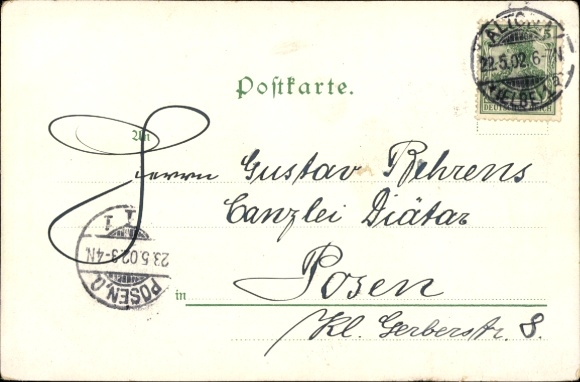 Postkarte.
ALTONA
22.5.02.6-7N
(ELBE) 1 a
5
DEUTSCHES REICH
An
Herrn Gustav Behrens
Canzlei Diätar
in Posen
Kl. Gerberstr. 8.
POSEN.O.
23.5.02.3-4N.
1